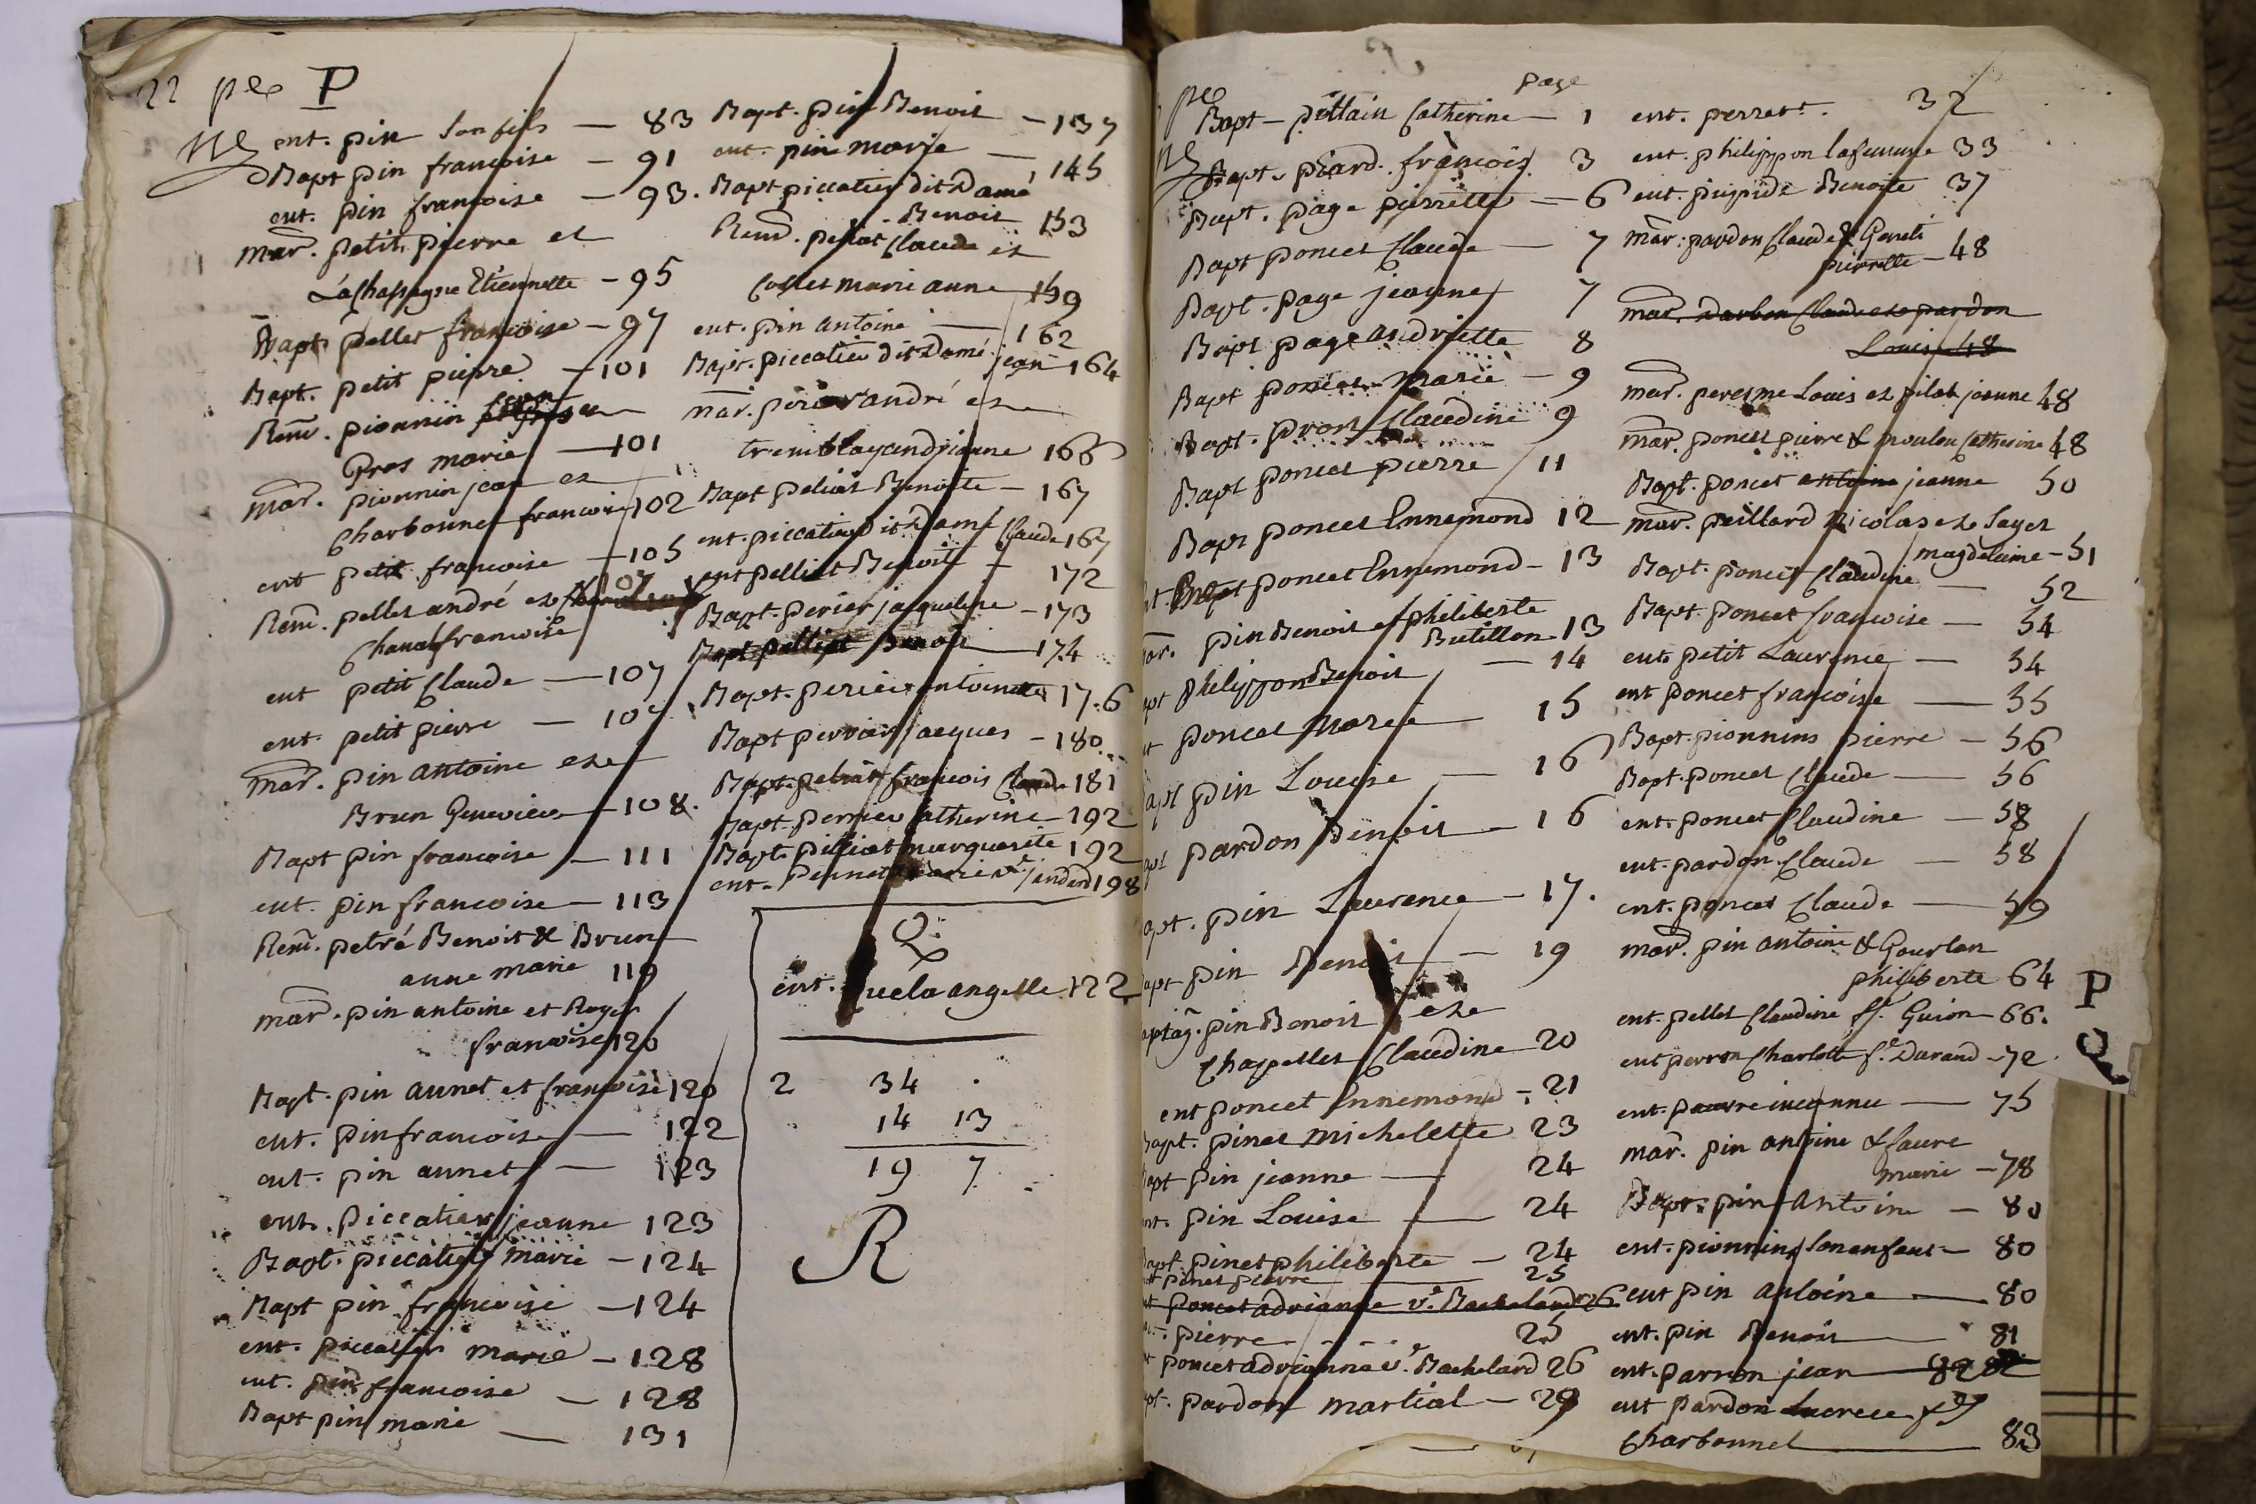 22 P
ent. pin son fils — 83
Bapt pin francoise — 91
ent. pin francoise — 93.
mar. petit pierre et
Lachassagne Etiennette — 95
Bapt. pellet francoise — 97
Bapt. petit pierre — 101
Rem. pionnin
Gros marie — 101
mar. pionnin jean et
Charbonnet francoise 102
ent petit francoise — 105
Rem. pellet andré et 107
Chanal francoise
ent petit Claude — 107
ent. petit pierre — 107
mar. pin antoine et
Brun Genevieve — 108.
Bapt pin francoise — 111
ent. pin francoise — 113
Rem. petré Benoit & Brun
anne marie 119
mar. pin antoine et Roger
francoise 120
Bapt. pin annet et francoise 120
ent. pin francoise — 122
ent. pin annet — 123
ent. piccatier jeanne 123
Bapt. piccatier marie — 124
Bapt pin francoise — 124
ent. piccatier marie — 128
ent. pin francoise — 128
Bapt pin marie — 131
Bapt. pin Benoit — 137
ent. pin marie — 145
Bapt piccatier dit Damé
Benoit 153
Rem. peliat Claude et
Collet marie anne 159
ent. pin antoine — 162
Bapt. piccatier dit Damé jean 164
mar. perier andré et
tremblay andrianne 166
Bapt peliat Benoite — 167
ent. piccatier dit Damé Claude 167
ent pelliat Benoite — 172
Bapt. perier jacqueline — 173
Bapt pelliat Benoit — 174
Bapt. perier antoinette 176
Bapt perroit jacques — 180
Bapt. peliat francois Claude 181
Bapt. perrier Catherine — 192
Bapt. pilliat marguerite 192
ent. 198
Q.
ent. Quela angelle 122
2 34
14 13
19 7
R
page
Bapt — pittain Catherine — 1
Bapt. piard. francois 3
Bapt. page pierrette — 6
Bapt poncet Claude — 7
Bapt. page jeanne 7
Bapt page andriette 8
Bapt poncet marie — 9
Bapt. pron Claudine 9
Bapt poncet pierre 11
Bapt poncet Ennemond 12
poncet Ennemond — 13
mar. pin Benoit et philiberte
Butillon 13
philippon Benoit — 14
poncet Marie 15
pin Louise — 16
pardon Benoit — 16
pin Laurence — 17.
pin Benoit — 19
pin Benoit et
Chappellet Claudine 20
ent poncet Ennemond — 21
Bapt. pinet michelette 23
Bapt pin jeanne — 24
ent. pin Louise — 24
Bapt. pinet philiberte — 24
pinet pierre 25
ent poncet adrianne ve. Bachelard 26
pierre 25
poncet adrianne ve. Bachelard 26
pardon martial — 29
ent. perret. 32
ent. philippon la femme 33
ent. Benoite 37
mar. pardon Claude & Goneti
pierrette — 48
mar. Darbon Claude et pardon
Louise 48
mar. peresme Louis et pilat jeanne 48
mar. poncet pierre & moulon Catherine 48
Bapt. poncet antoine jeanne 50
mar. peillard Nicolas et Layet
magdelaine — 51
Bapt. poncet Claudine — 52
Bapt. poncet francoise — 54
ent. petit Laurence — 54
ent poncet francoise — 55
Bapt. pionnins pierre — 56
Bapt. poncet Claude — 56
ent. poncet Claudine — 58
ent. pardon Claude — 58
ent. poncet Claude — 59
mar. pin antoine & Gourlan
philiberte 64
ent. pellet Claudine fe. Guion 66.
ent perron Charlotte fe. Durand — 72
ent. pauvre inconnu — 75
mar. pin antoine & faure
marie — 78
Bapt. pin antoine — 80
ent. pionnins son enfant — 80
ent pin antoine — 80
ent. pin Benoit — 81
ent. parron jean 82
ent pardon Lucrece
Charbonnel 83
P
Q